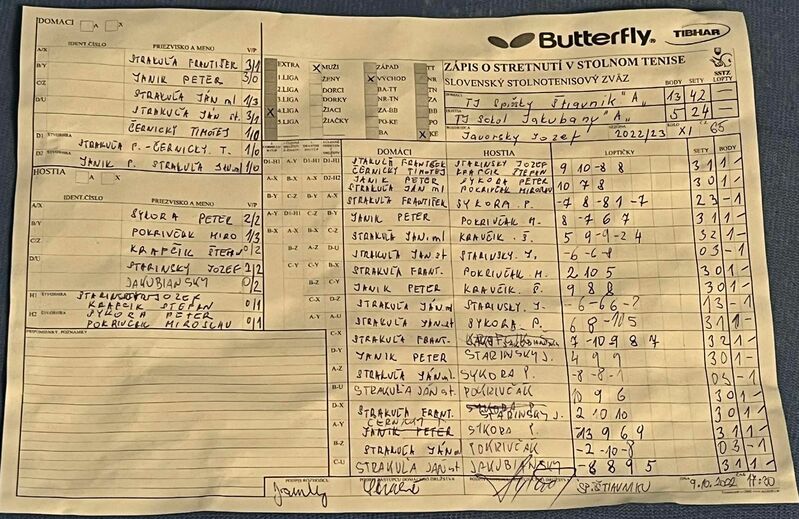 DOMACI A X
IDENT.ČÍSLO PRIEZVISKO A MENO V/P
A/X STRAKUĽA FRANTIŠEK 3/1
B/Y JANIK PETER 3/0
C/Z STRAKUĽA JÁN ml 1/3
D/U STRAKUĽA JÁN st. 3/1
ČERNICKÝ TIMOTEJ 1/0
D1 STRAKUĽA P. - ČERNICKÝ. T. 1/0
D2 JANIK P. STRAKUĽA JÁN ml 1/0
HOSTIA A X
IDENT.ČÍSLO PRIEZVISKO A MENO V/P
A/X SYKORA PETER 2/2
B/Y POKRIVČAK MIRO 1/3
C/Z KRAFČIK ŠTEFAN 0/2
D/U STARINSKY JOZEF 2/2
JAKUBIANSKY 0/2
H1 STARINSKY JOZEF
KRAFCIK STEPAN 0/1
H2 SYKORA PETER
POKRIVČAK MIROSLAV 0/1
PRIPOMIENKY, POZNÁMKY
Butterfly TIBHAR
ZÁPIS O STRETNUTÍ V STOLNOM TENISE
SLOVENSKÝ STOLNOTENISOVÝ ZVÄZ
SSTZ
EXTRA X MUŽI ZÁPAD TT
1.LIGA ŽENY X VÝCHOD NR
2.LIGA DORCI BA-TT TN
3.LIGA DORKY NR-TN ZA
X 4.LIGA ŽIACI ZA-BB BB
5.LIGA ŽIAČKY PO-KE PO
BA X KE
BODY SETY LOPTY
TJ Spišský Štiavnik "A" 13 42
TJ Sokol Jakubany "A" 5 24
Javorsky Jozef 2022/23 XI 65
DOMACI HOSTIA LOPTIČKY SETY BODY
D1-H1 STAKUĽA FRANTIŠEK STARINSKY JOZEF
ČERNICKÝ TIMOTEJ KRAFČIK ŠTEFAN 9 10 -8 8 3 1 1 -
JANIK PETER SYKORA PETER
STRAKUĽA JÁN ml POKRIPČAK MIROSLAV 10 7 8 3 0 1 -
STRAKUĽA FRANTIŠEK SYKORA. P. -7 8 -8 1 -7 2 3 - 1
JANIK PETER POKRIVČAK M. 8 -7 6 7 3 1 1 -
STRAKUĽA JÁN ml KRAVČIK. Š. 5 9 -9 -2 4 3 2 1 -
STRAKUĽA JÁN st STARINSKY. J. -6 -6 -8 0 3 - 1
STRAKUĽA FRANT. POKRIVČAK M. 2 10 5 3 0 1 -
JANIK PETER KRAVČIK. Š 9 8 8 3 0 1 -
STRAKUĽA JÁN ml STARINSKY. J. -6 -6 6 -7 1 3 - 1
STRAKUĽA JÁN st SYKORA. P. 6 8 -10 5 3 1 1 -
STRAKUĽA FRANT. 7 -10 9 8 7 3 2 1 -
JANIK PETER STARINSKÝ J. 4 9 9 3 0 1 -
STRAKUĽA JÁN ml. SYKORA P. -8 -8 -1 0 3 - 1
STRAKUĽA JÁN st POKRIVČAK 10 9 6 3 0 1 -
STRAKUĽA FRANT. STARINSKY J. 2 10 10 3 0 1 -
ČERNICKÝ T SIKORA P. -13 9 6 9 3 1 1 -
STRAKUĽA JÁN ml POKRIVČAK -2 -10 -8 0 3 - 1
STRAKUĽA JÁN st JAKUBIANSKY -8 8 9 5 3 1 1 -
PODPIS ROZHODCU
SP. ŠTIAVNIKU 9.10.2022 17:30